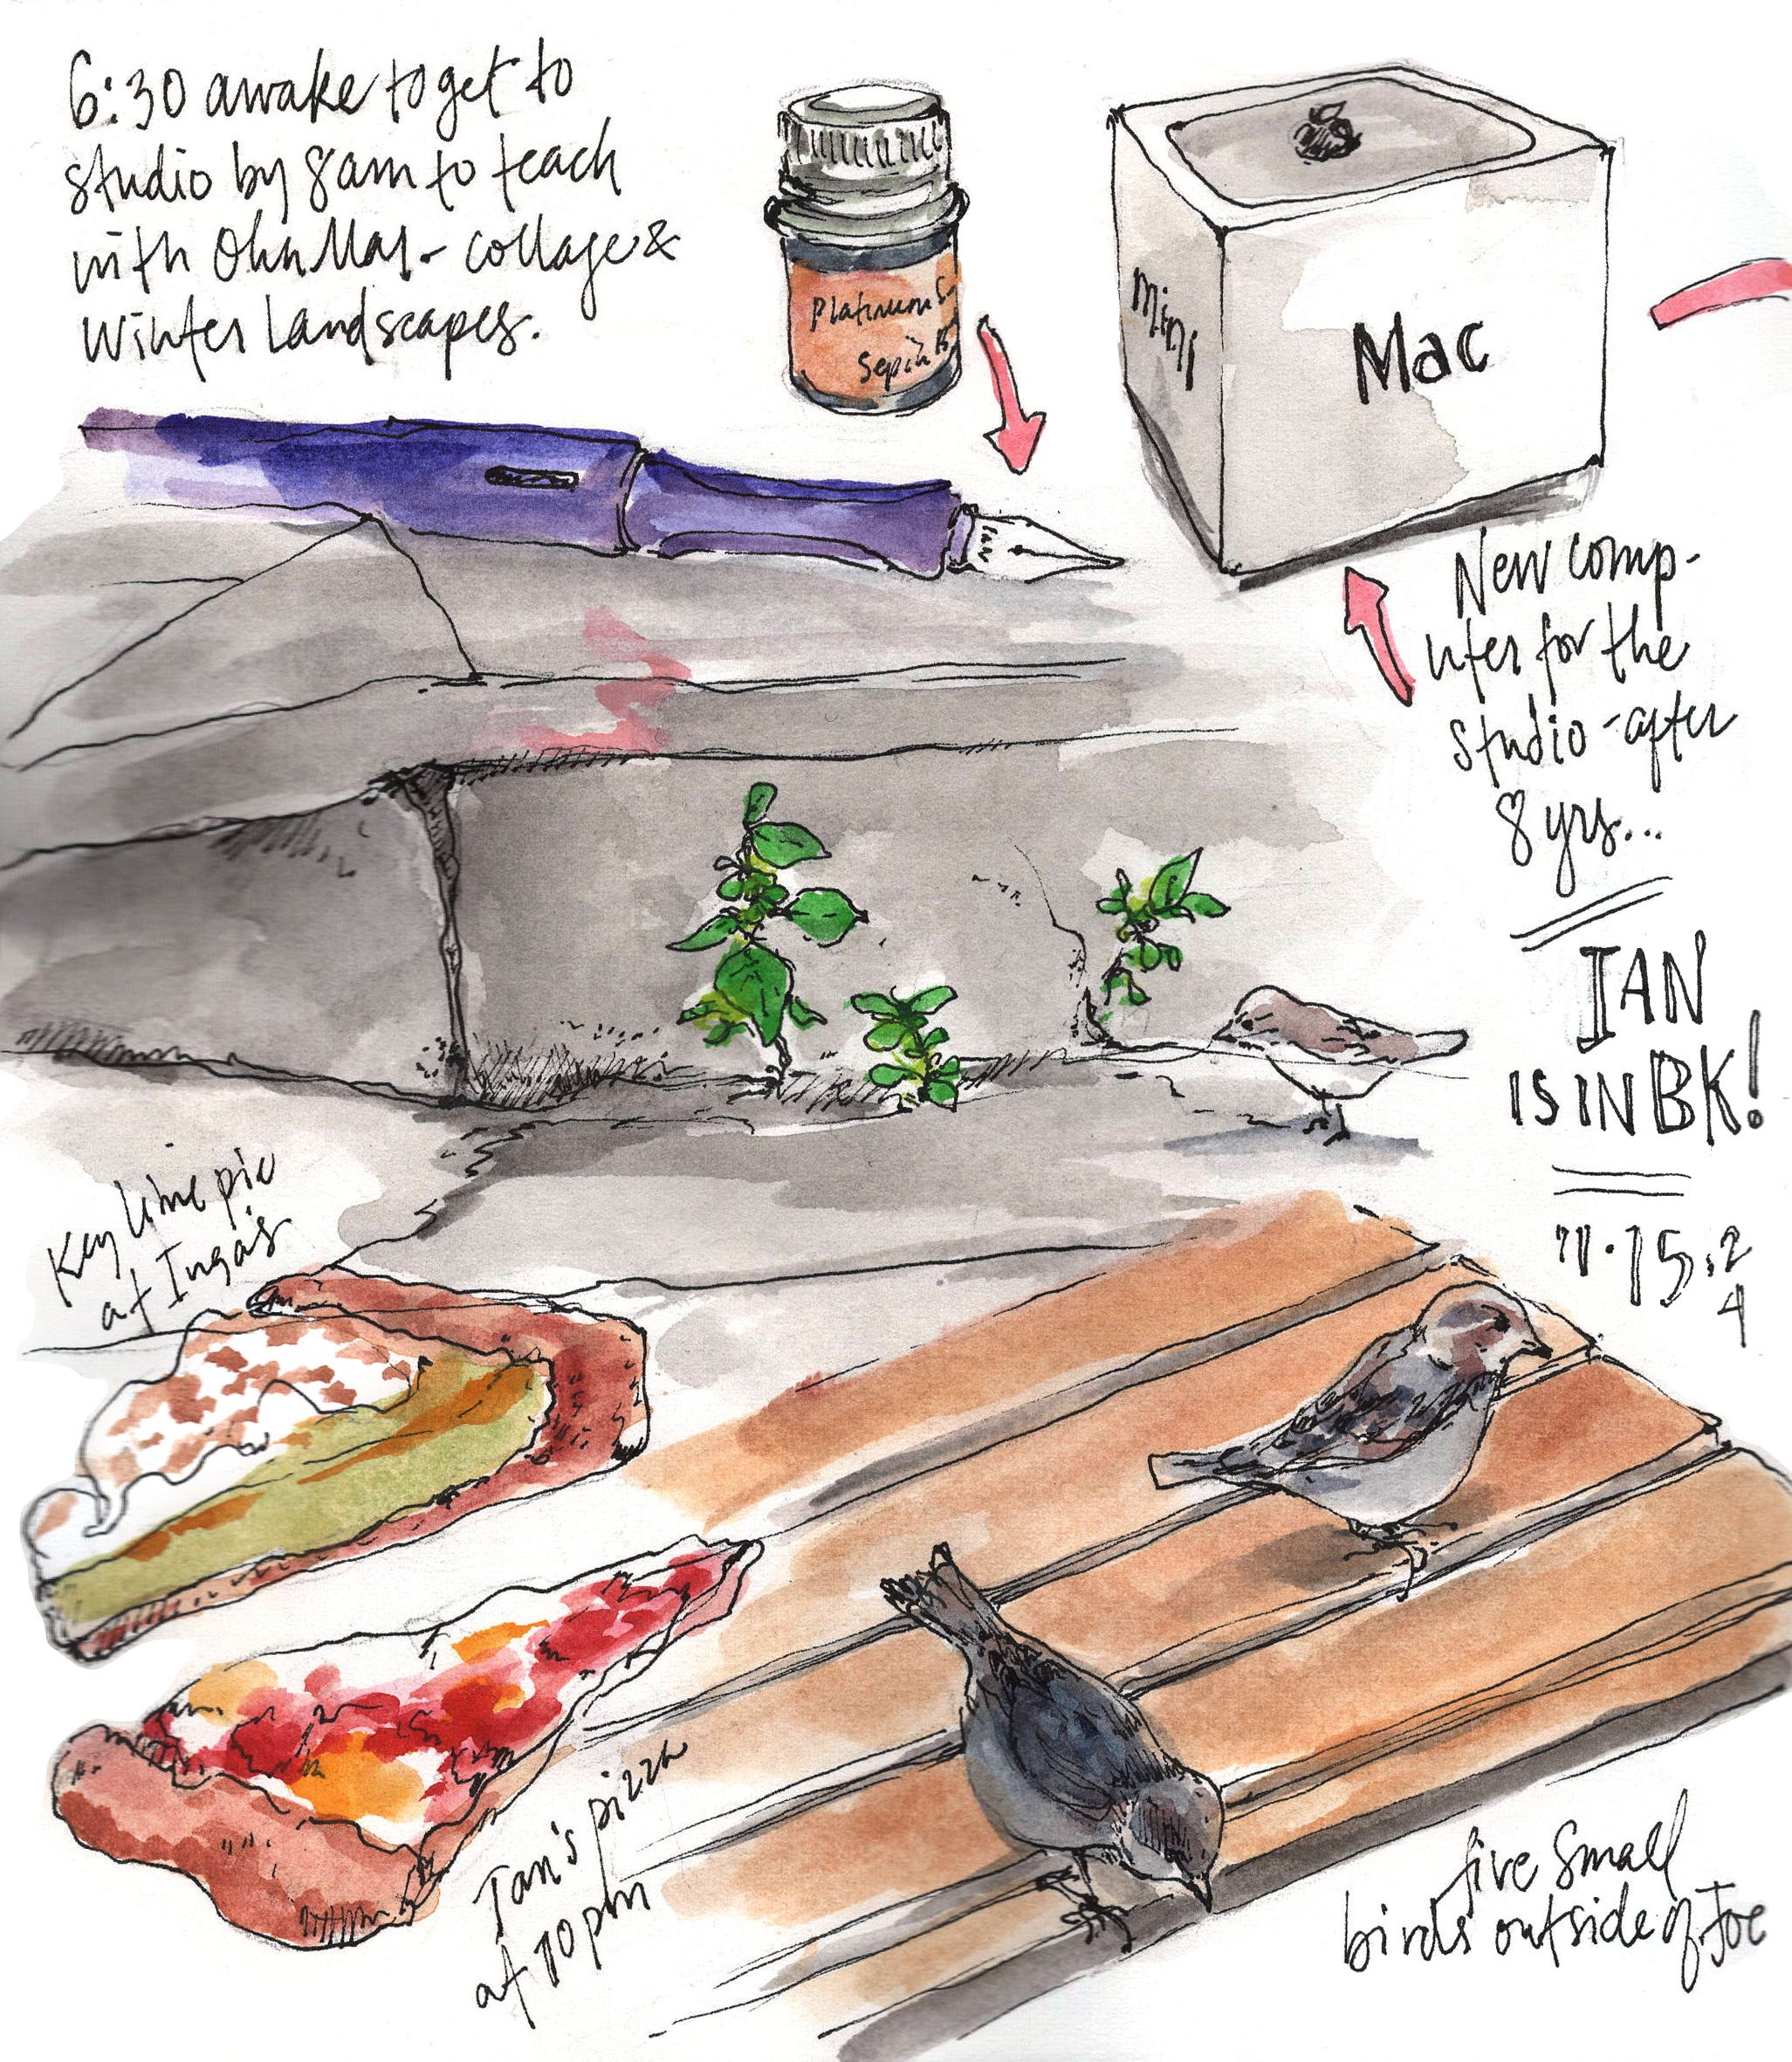 6:30 awake to get to
studio by 8am to teach
with - collage &
Winter Landscapes.
Platinum
Sepia
Mini
Mac
New comp-
uter for the
studio - after
8 yrs...
IAN
IS IN BK!
11.15.24
Key lime pie
at Inga's
Ian's pizza
at 10pm
five small
birds outside of Joe